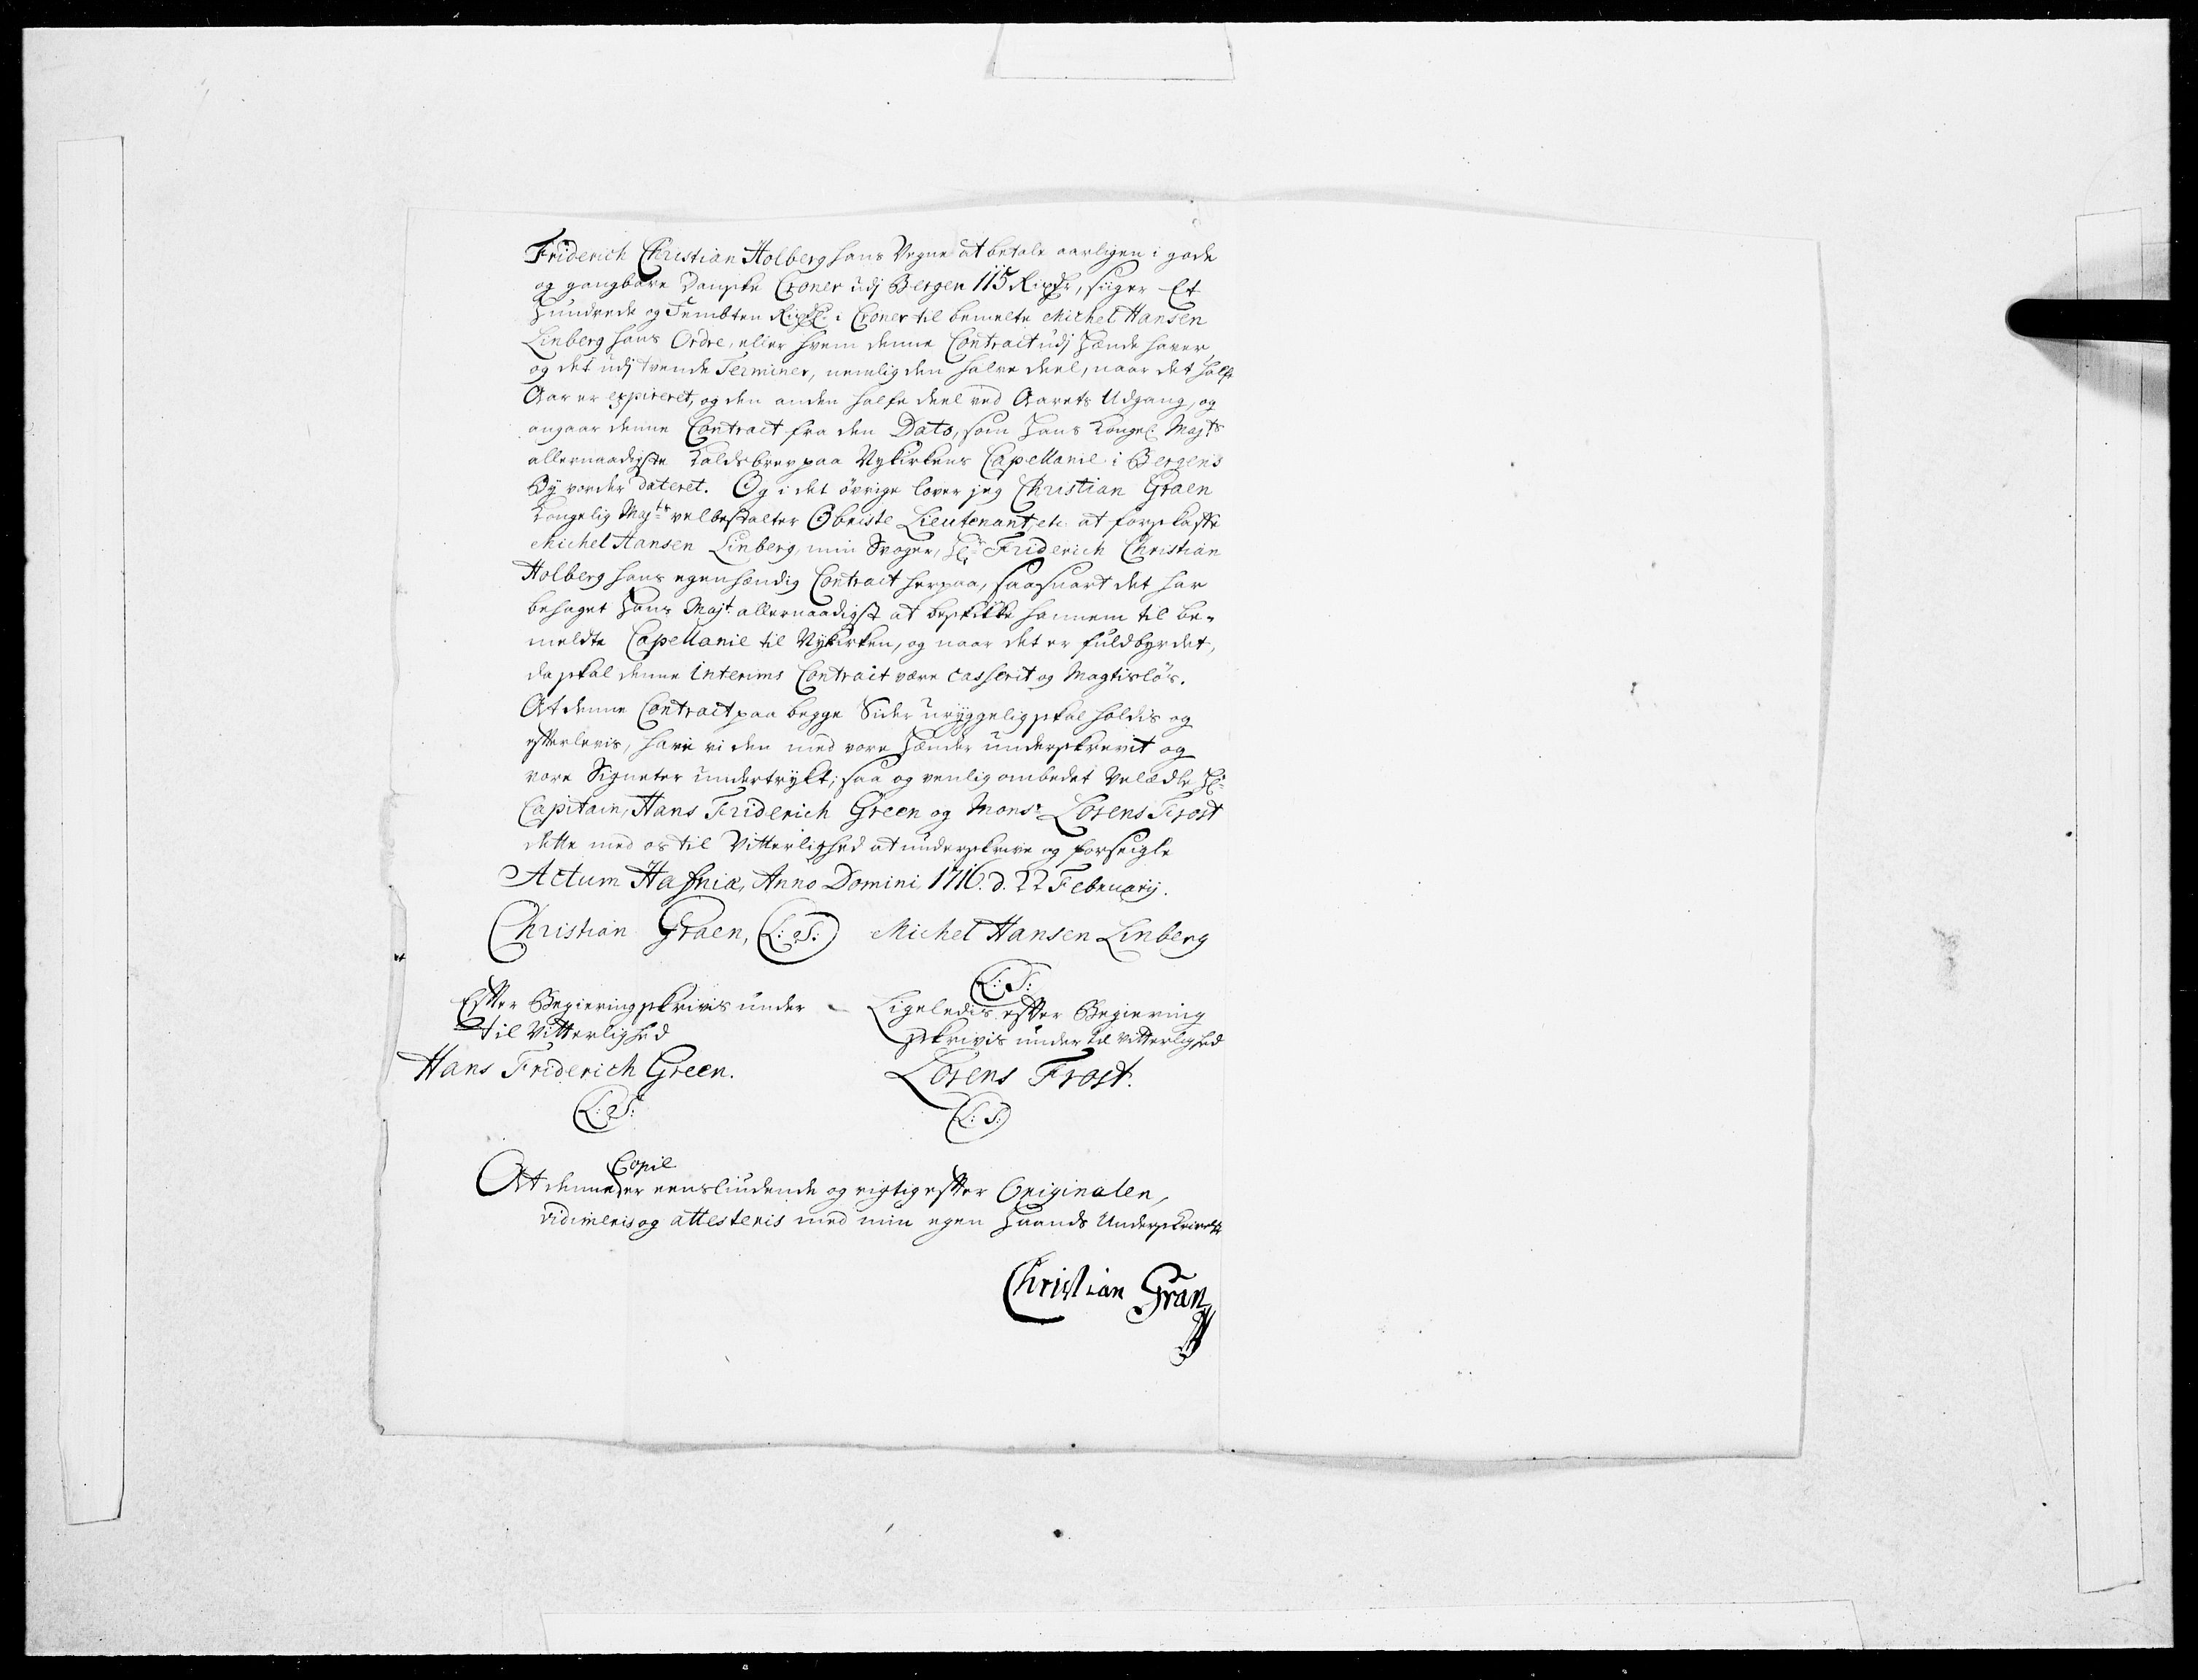 Friderich Christian Holberg hans Vegne at betale aarligen i gode
og gangbare Danske Croner udj Bergen 115 Rixdr, siiger Et
Hundrede og Fembten Rixdr i Croner til bemelte Michel Hansen
Linberg hans Ordre, eller hvem denne Contract udj Hænde haver,
og det udj tvende Terminer, nemlig den halve deel, naar det halfe
Aar er expireret, og den anden halfe deel ved Aarets Udgang, og
angaar denne Contract fra den Dato, som Hans Kongel Majts
allernaadigste Kaldsbrev paa Nykirkens Capellanie i Bergens
By vorder dateret. Og i det øvrige lover jeg Christian Graen
Kongelig Majts velbestalter Obriste Lieutenant, etc. at forskaffe
Michel Hansen Linberg, min Svoger, Hr Friderich Christian
Holberg hans egenhændig Contract herpaa, saasnart det har
behaget Hans Majt allernaadigst at beskikke hannem til be-
meldte Capellanie til Nykirken, og naar det er fuldbyrdet,
da skal denne Interims Contract være casserit og Magtisløs.
At denne Contract paa begge Sider uryggelig skal holdis og
efterlevis, have vi den med vore Hænder underskrevit og
vore Signeter undertrykt; saa og venlig ombedet Velædle Hr
Capitain, Hans Friderich Green og Monsr Lorens Frost
dette med os til Vitterlighed at underskrive og forseigle
Actum Hafniæ, Anno Domini, 1716. d. 22 February.
Christian Graen, (L: S:) Michel Hansen Linberg
(L: S:)
Efter Begiering skrivis under
til Vitterlighed
Hans Friderich Green.
(L: S:)
Ligeledis efter Begiering
skrivis under til Vitterlighed
Lorens Frost.
(L: S:)
Copie
At denne er eensliudende og rigtig efter Originalen,
vidimeris og attesteris med min egen Haands Underskrivelse
Christian Gran